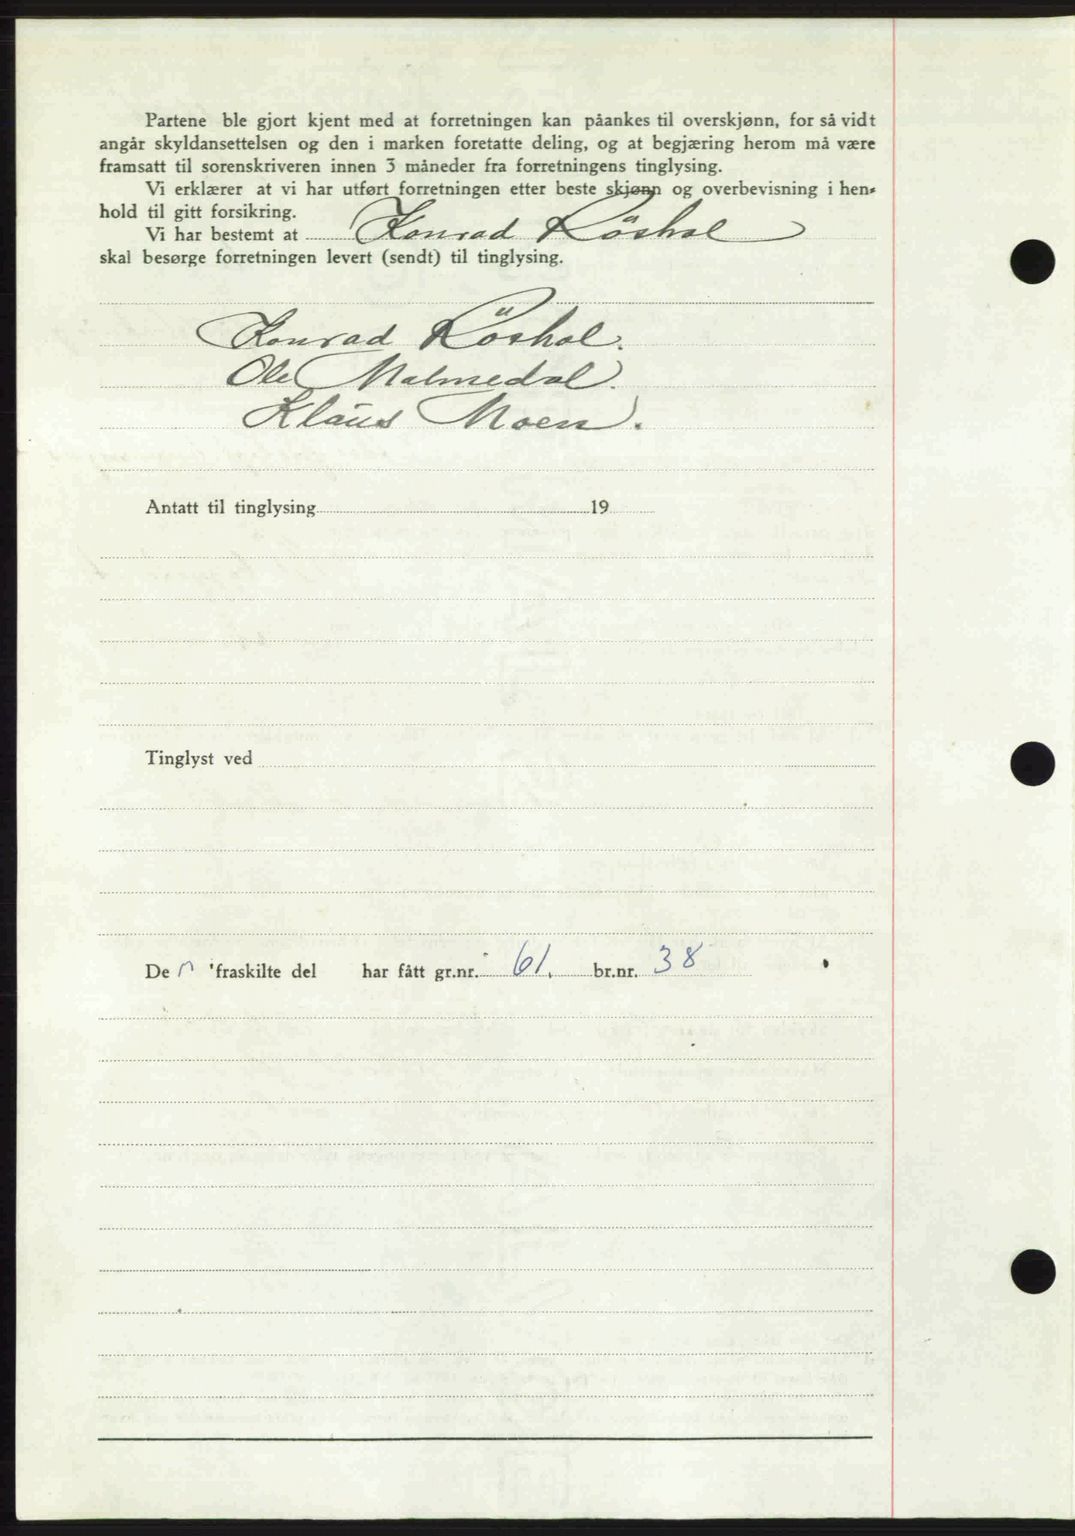 Partene ble gjort kjent med at forretningen kan påankes til overskjønn, for så vidt
angår skyldansettelsen og den i marken foretatte deling, og at begjæring herom må være
framsatt til sorenskriveren innen 3 måneder fra forretningens tinglysing.
Vi erklærer at vi har utført forretningen etter beste skjønn og overbevisning i hen-
hold til gitt forsikring.
Vi har bestemt at Konrad Röshol
skal besørge forretningen levert (sendt) til tinglysing.
Konrad Röshol.
Ole Malmedal.
Klaus Moen.
Antatt til tinglysing 19
Tinglyst ved
De n fraskilte del har fått gr.nr. 61. br.nr. 38